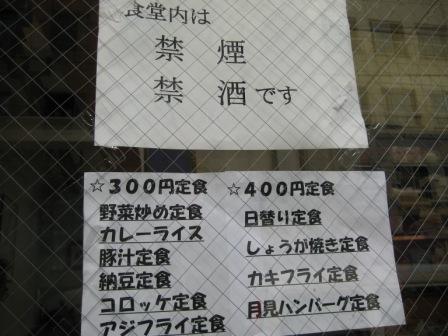 食堂内は
禁煙
禁酒です
☆３００円定食
野菜炒め定食
カレーライス
豚汁定食
納豆定食
コロッケ定食
アジフライ定食
☆４００円定食
日替り定食
しょうが焼き定食
カキフライ定食
月見ハンバーグ定食